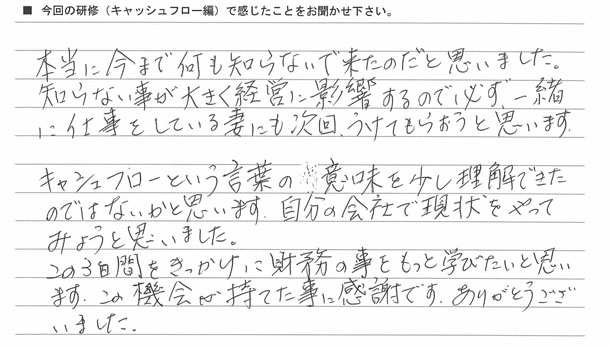 ■ 今回の研修（キャッシュフロー編）で感じたことをお聞かせ下さい。
本当に今まで何も知らないで来たのだと思いました。
知らない事が大きく経営に影響するので必ず、一緒
に仕事をしている妻にも次回、うけてもらおうと思います.
キャシュフローという言葉の意味を少し理解できた
のではないかと思います. 自分の会社で現状をやって
みようと思いました。
この3日間をきっかけに財務の事をもっと学びたいと思い
ます. この機会が持てた事に感謝です. ありがとうござ
いました.